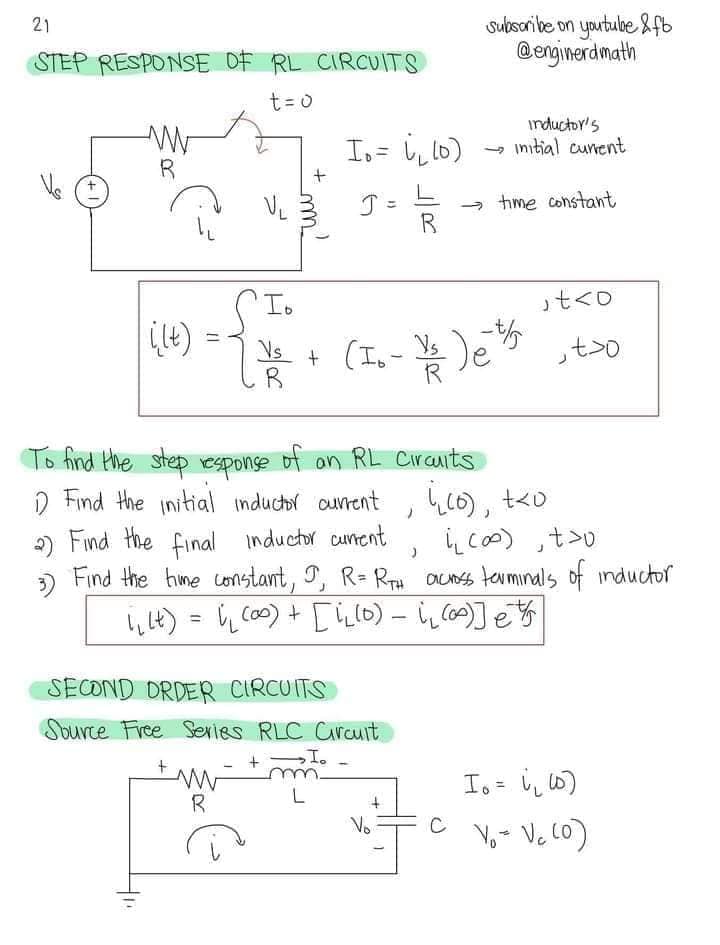 21
subscribe on youtube & fb
@enginerdmath
STEP RESPONSE OF RL CIRCUITS
t=0
R
Vs
+
-
iL
VL
+
-
I₀ = iL(0) → inductor's initial current
τ = L/R → time constant
iL(t) = { I₀ , t<0
Vs/R + (I₀ - Vs/R)e^-t/τ , t>0
To find the step response of an RL Circuits
1) Find the initial inductor current , iL(0), t<0
2) Find the final inductor current , iL(∞) , t>0
3) Find the time constant, τ, R = RTH across terminals of inductor
iL(t) = iL(∞) + [iL(0) - iL(∞)] e^-t/τ
SECOND ORDER CIRCUITS
Source Free Series RLC Circuit
+ - + → I₀ -
R
L
i
V₀
+
-
C
I₀ = iL(0)
V₀ = Vc(0)